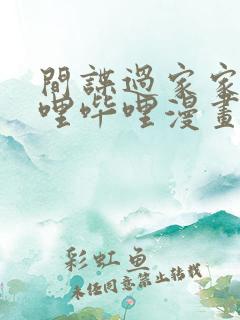 間諜過家家
哩哔哩漫畫
彩虹鱼
未经同意禁止转载